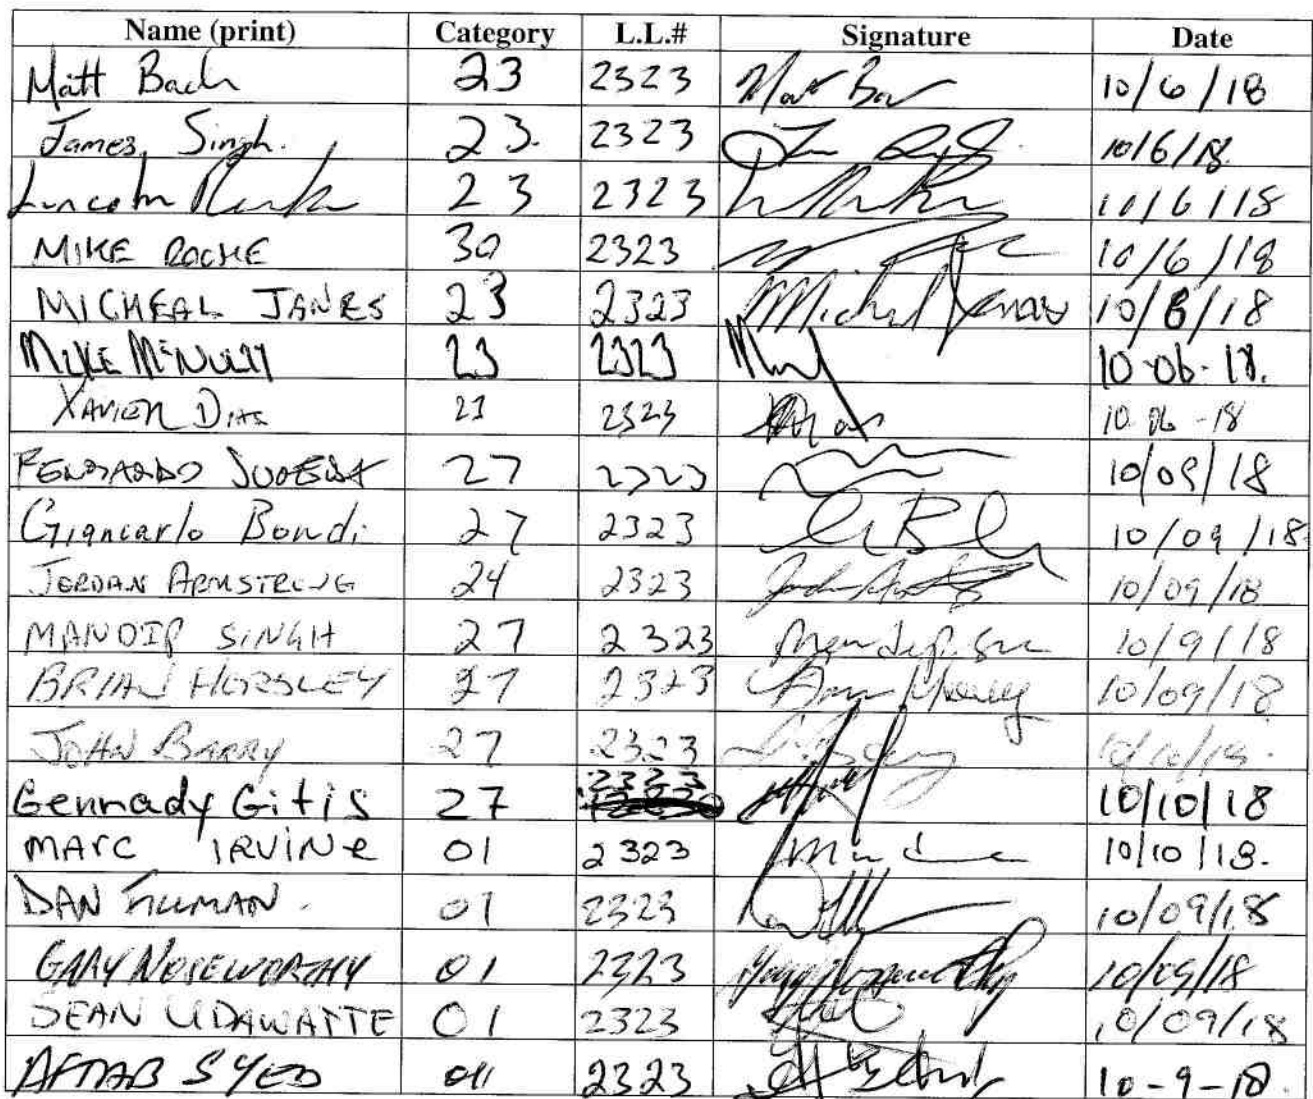 Name (print) Category L.L.# Signature Date
Matt Bach 23 2323 10/6/18
James Singh. 23. 2323 10/6/18
Lincoln 23 2323 10/6/18
MIKE ROCHE 30 2323 10/6/18
MICHEAL JANES 23 2323 Michael Janes 10/6/18
MIKE McNULTY 23 2323 10-06-18.
XAVIER DIAS 23 2323 10-06-18
FERNANDO 27 2323 10/09/18
Giancarlo Bondi 27 2323 10/09/18.
JORDAN ARMSTRONG 24 2323 10/09/18
MANDIP SINGH 27 2323 10/9/18
BRIAN HORSLEY 27 2323 10/09/18
JOHN BARRY 27 2323 10/10/18.
Gennady Gitis 27 2323 10/10/18
MARC IRVINE 01 2323 10/10/18.
DAN 01 2323 10/09/18
GARY NOSEWORTHY 01 2323 Gary Noseworthy 10/09/18
SEAN UDAWATTE 01 2323 10/09/18
AFTAB SYED 01 2323 10-9-18.